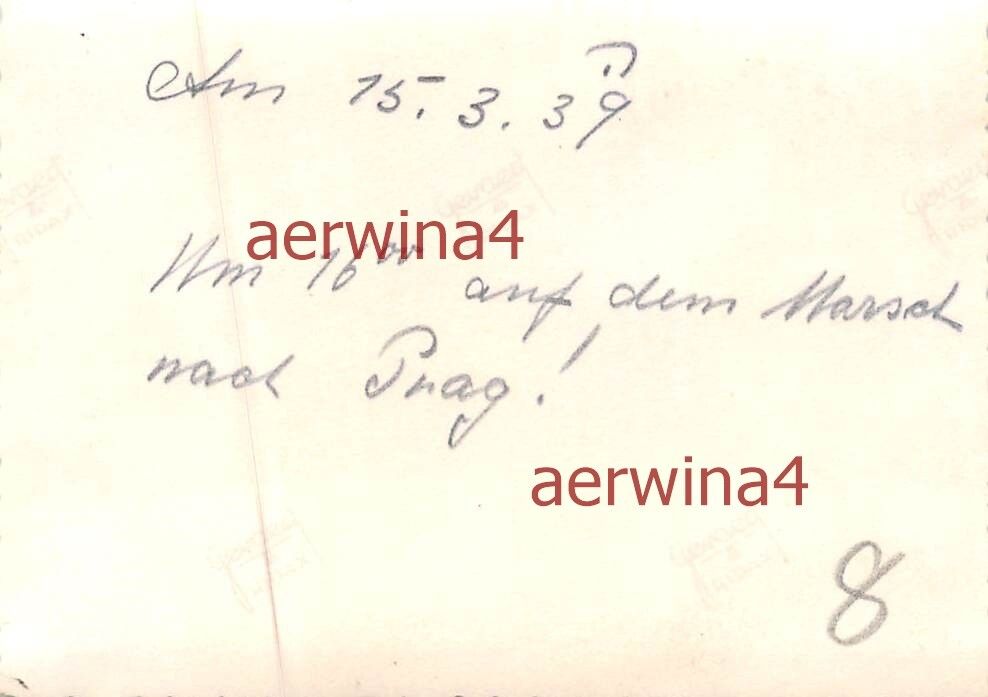 Am 15. 3. 39
aerwina4
Um 16⁰⁰ auf dem Marsch
nach Prag!
aerwina4
8